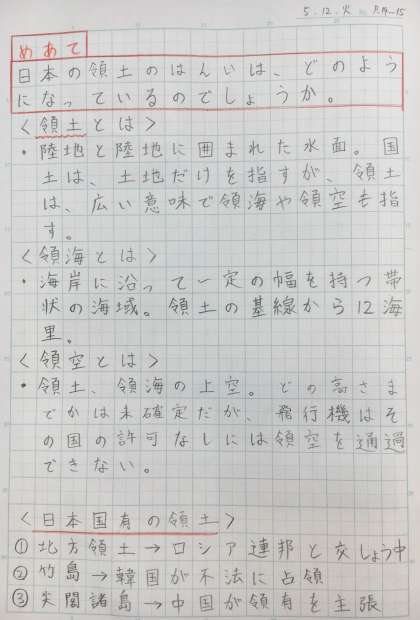 5.12.火 P.14-15
めあて
日本の領土のはんいは、どのよう
になっているのでしょうか。
<領土とは>
・陸地と陸地に囲まれた水面。国
土は、土地だけを指すが、領土
は、広い意味で領海や領空も指
す。
<領海とは>
・海岸に沿って一定の幅を持つ帯
状の海域。領土の基線から12海
里。
<領空とは>
・領土、領海の上空。どの高さま
でかは未確定だが、飛行機はそ
の国の許可なしには領空を通過
できない。
<日本国有の領土>
①北方領土→ロシア連邦と交しょう中
②竹島→韓国が不法に占領
③尖閣諸島→中国が領有を主張